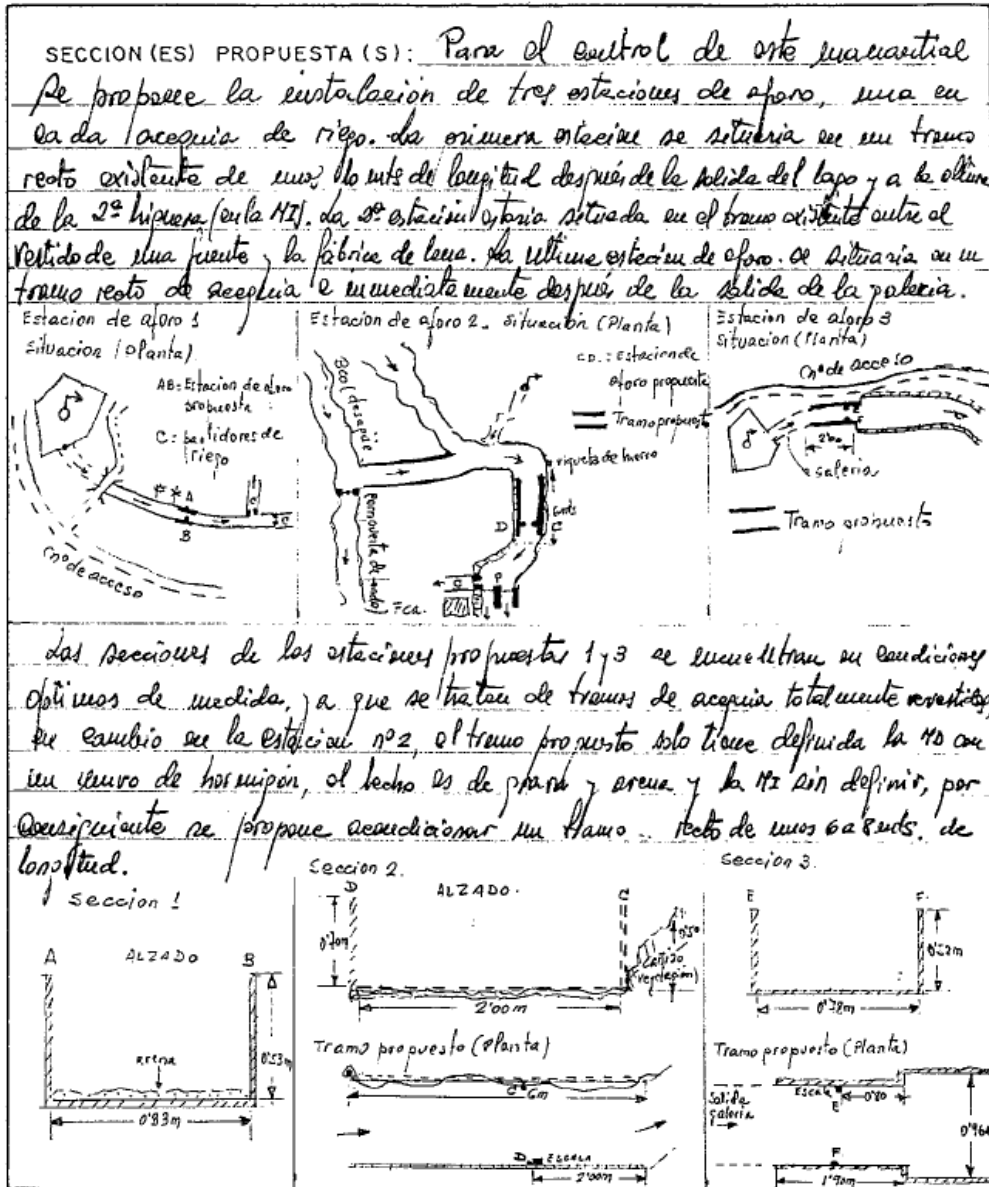 SECCION (ES) PROPUESTA (S): Para el control de este manantial
se propone la instalación de tres estaciones de aforo, una en
cada acequia de riego. La primera estacion se situaria en un tramo
recto existente de unos 10 mts de longitud después de la salida del lago y a la altura
de la 2ª higuera (en la MI). La 2ª estación estaria situada en el tramo existente entre el
vertido de una fuente y la fábrica de lana. La ultima estación de aforo se situaria en un
tramo recto de acequia e inmediatamente después de la salida de la galeria.
Estacion de aforo 1
Situacion (Planta)
AB: Estacion de aforo
propuesta
C: partidores de
riego
A
B
C
C
cno de acceso
Estacion de aforo 2. Situación (Planta)
CD: Estacion de
aforo propuesta
Tramo propuesto
Bco (desagüe)
riqueta de hierro
6mts
D
C
compuerta de
Fca.
P
Estacion de aforo 3
Situacion (Planta)
cno de acceso
E
F
galeria
Tramo propuesto
Las secciones de las estaciones propuestas 1 y 3 se encuentran en condiciones
optimas de medida, ya que se tratan de tramos de acequia totalmente revestidos,
en cambio en la estacion nº 2, el tramo propuesto solo tiene definida la MD con
un muro de hormigón, el lecho es de grava y arena y la MI sin definir, por
consiguiente se propone acondicionar un tramo recto de unos 6 a 8 mts. de
longitud.
Seccion 1
A ALZADO B
arena
0'53m
0'83m
Seccion 2.
D ALZADO. C
0'70m
0'50
cañizo
(vegetación)
2'00m
Tramo propuesto (Planta)
C
6m
D ESCALA
2'00m
Seccion 3.
E F.
0'78m
Tramo propuesto (Planta)
Salida
galeria
Escala
E
0'80
F.
1'90m
0'96m